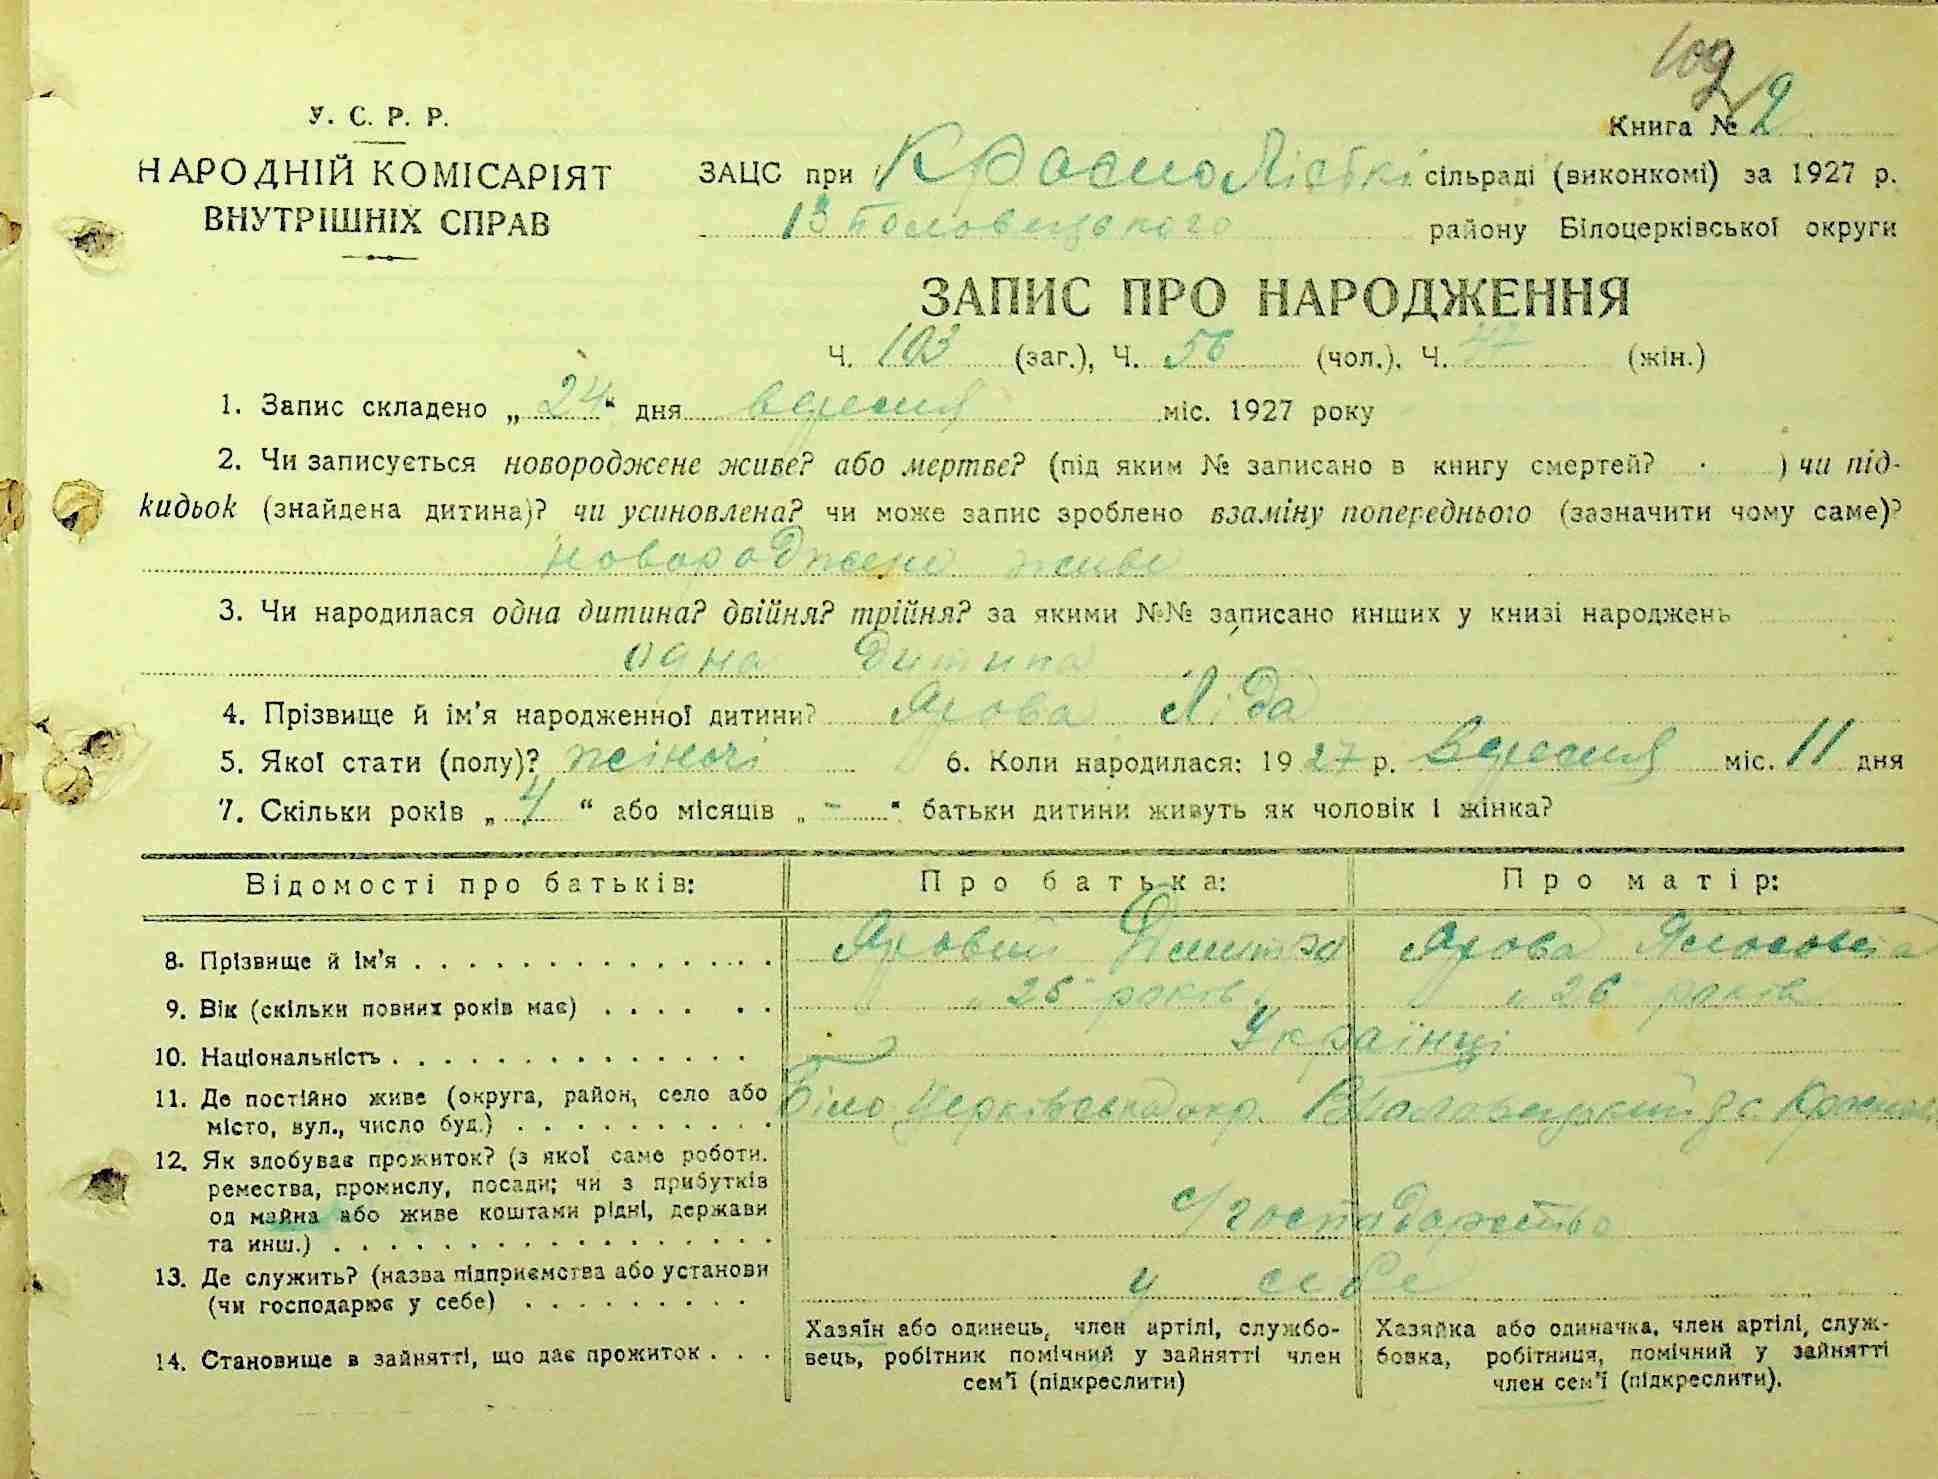 109
У. С. Р. Р.
Книга № 2
НАРОДНІЙ КОМІСАРІЯТ
ВНУТРІШНІХ СПРАВ
ЗАЦС при сільраді (виконкомі) за 1927 р.
району Білоцерківської округи
ЗАПИС ПРО НАРОДЖЕННЯ
Ч. 103 (заг.), Ч. 56 (чол.), Ч. (жін.)
1. Запис складено „ 24 “ дня вересня міс. 1927 року
2. Чи записується новороджене живе? або мертве? (під яким № записано в книгу смертей? ) чи під-
кидьок (знайдена дитина)? чи усиновлена? чи може запис зроблено взаміну попереднього (зазначити чому саме)?
новороджене живе
3. Чи народилася одна дитина? двійня? трійня? за якими №№ записано инших у книзі народжень
одна дитина
4. Прізвище й ім’я народженної дитини? Ярова Ліда
5. Якої стати (полу)? жіночі 6. Коли народилася: 1927 р. вересня міс. 11 дня
7. Скільки років „ 4 “ або місяців „ - “ батьки дитини живуть як чоловік і жінка?
Відомості про батьків: Про батька: Про матір:
8. Прізвище й ім’я . . . . . . . . . . . . . . Яровий Дмитро Ярова
9. Вік (скільки повних років має) . . . . . . 25 років 26 років
10. Національність . . . . . . . . . . . . . . Українці
11. Де постійно живе (округа, район, село або
місто, вул., число буд.) . . . . . . . . . . Біло Церківська окр.
12. Як здобуває прожиток? (з якої саме роботи,
ремества, промислу, посади; чи з прибутків
од майна або живе коштами рідні, держави
та инш.) . . . . . . . . . . . . . . . . . с/господарство
13. Де служить? (назва підприємства або установи
(чи господарює у себе) . . . . . . . . . у себе
14. Становище в зайнятті, що дає прожиток . . .
Хазяїн або одинець, член артілі, службо-
вець, робітник помічний у зайнятті член
сем’ї (підкреслити)
Хазяйка або одиначка, член артілі, служ-
бовка, робітниця, помічний у зайнятті
член сем’ї (підкреслити).